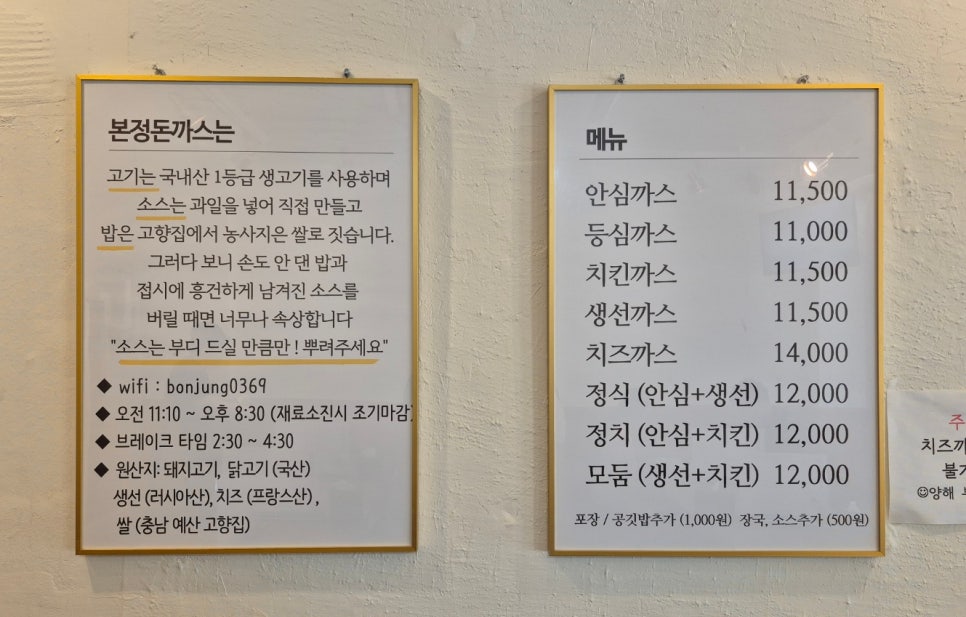 본정돈까스는
고기는 국내산 1등급 생고기를 사용하며
소스는 과일을 넣어 직접 만들고
밥은 고향집에서 농사지은 쌀로 짓습니다.
그러다 보니 손도 안 댄 밥과
접시에 흥건하게 남겨진 소스를
버릴 때면 너무나 속상합니다
"소스는 부디 드실 만큼만 ! 뿌려주세요"
◆ wifi : bonjung0369
◆ 오전 11:10 ~ 오후 8:30 (재료소진시 조기마감)
◆ 브레이크 타임 2:30 ~ 4:30
◆ 원산지: 돼지고기, 닭고기 (국산)
생선 (러시아산), 치즈 (프랑스산) ,
쌀 (충남 예산 고향집)
메뉴
안심까스 11,500
등심까스 11,000
치킨까스 11,500
생선까스 11,500
치즈까스 14,000
정식 (안심+생선) 12,000
정치 (안심+치킨) 12,000
모둠 (생선+치킨) 12,000
포장 / 공깃밥추가 (1,000원) 장국, 소스추가 (500원)
주
치즈까
불가
☺양해